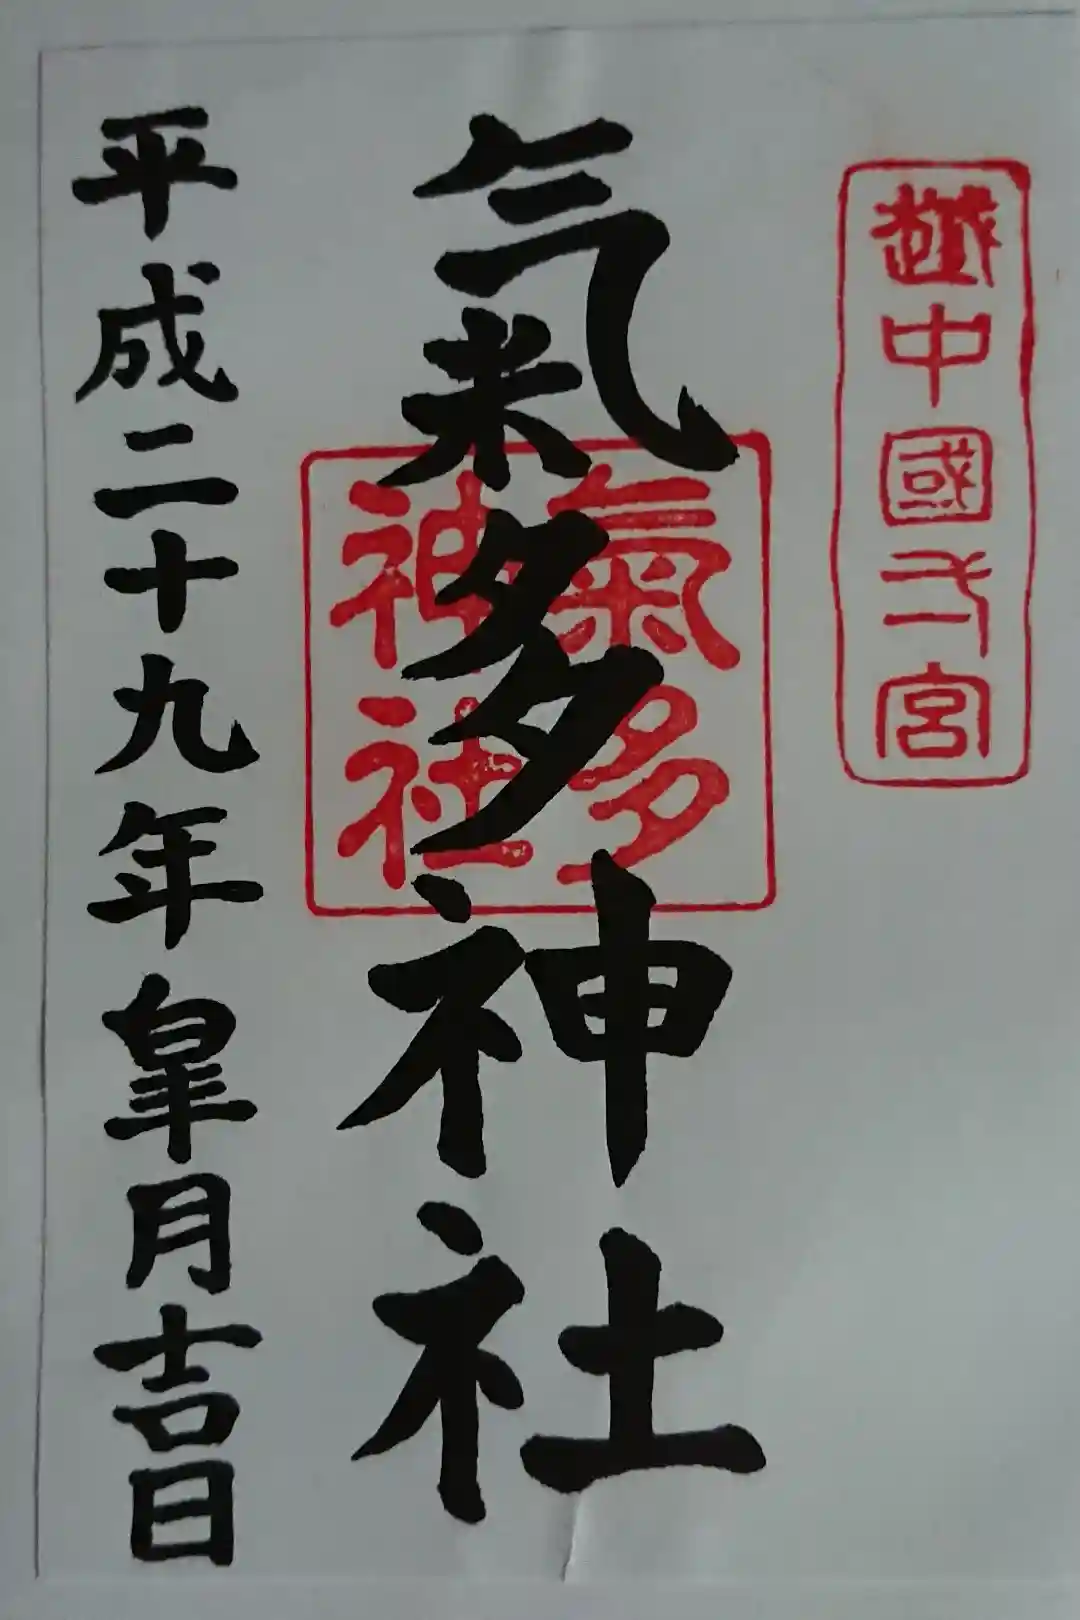 越中國弌宮
氣多神社
氣多
神社
平成二十九年皐月吉日